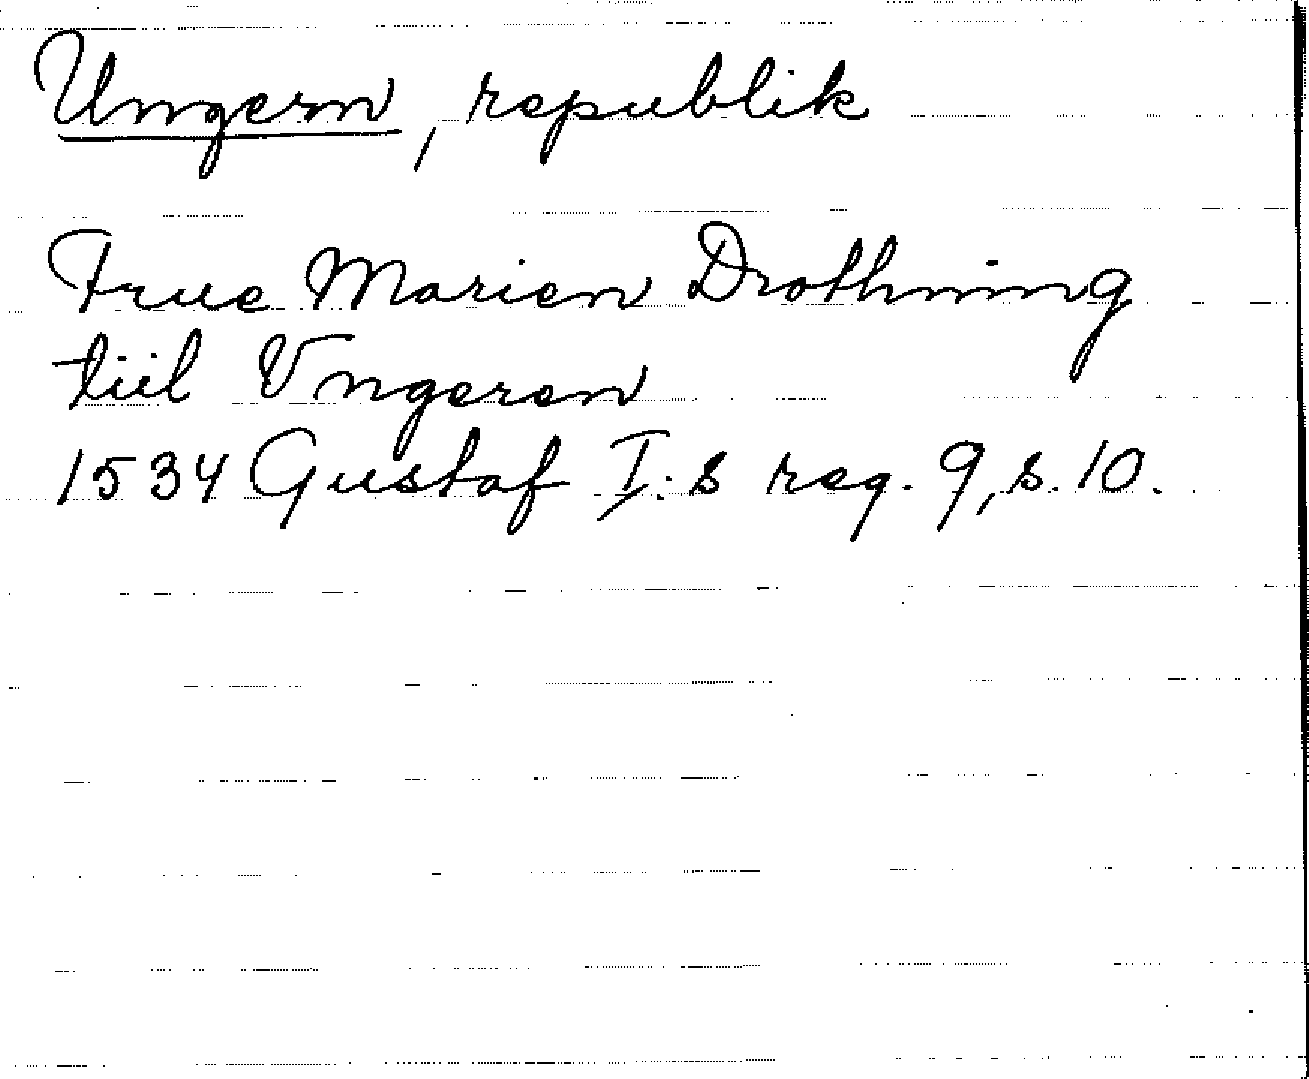 Ungern, republik
Frue Marien Drothning
tiil Vngeren
1534 Gustaf I:s reg. 9, s. 10.